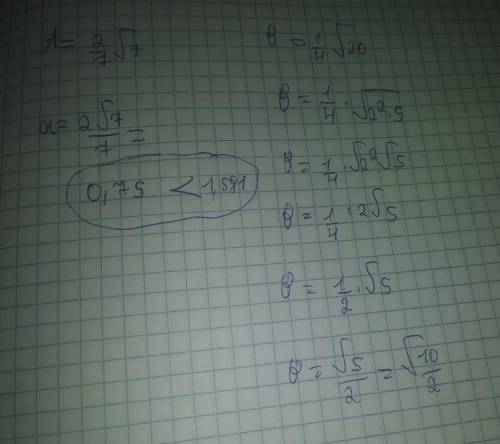 A = 2/7 √7
a = 2√7/7 =
0,75 < 1,581
B = 1/4 √20
B = 1/4 · √2²·5
B = 1/4 · √2² √5
B = 1/4 · 2√5
B = 1/2 · √5
B = √5/2 = √10/2